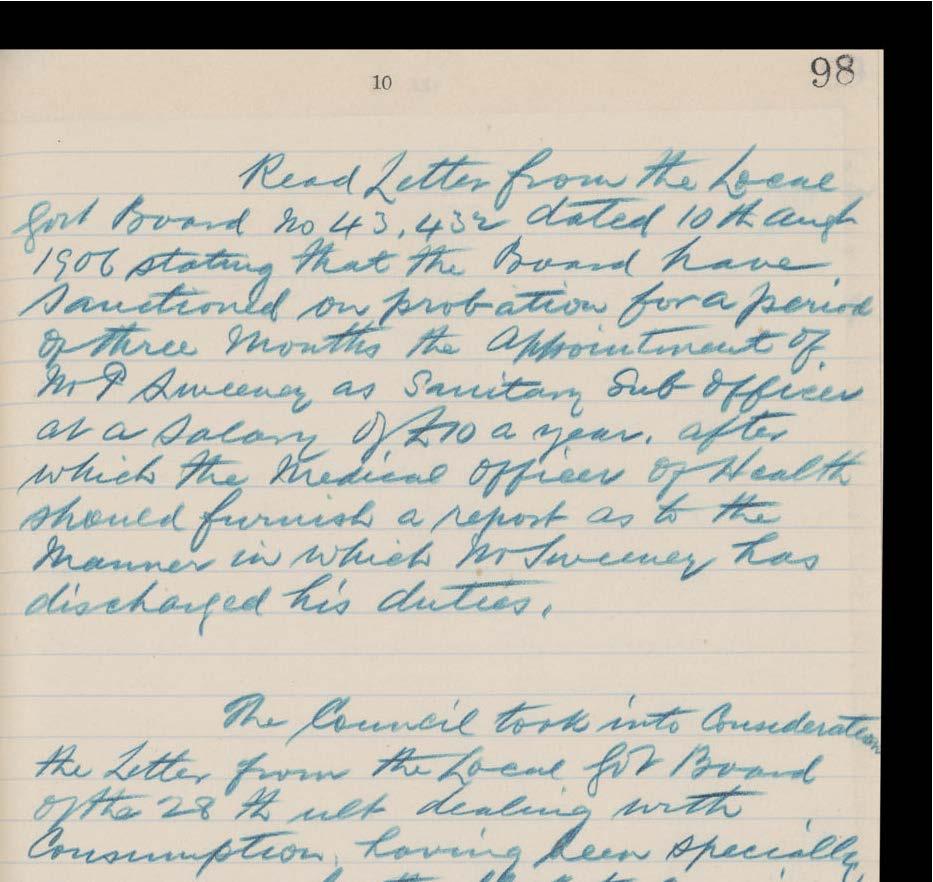 10
98
Read Letter from the Local
Govt Board No 43,432 dated 10th Augt
1906 stating that the Board have
Sanctioned on probation for a period
of three Months the Appointment of
Mr P Sweeney as Sanitary Sub Officer
at a Salary of £10 a year. after
which the Medical Officer of Health
should furnish a report as to the
Manner in which Mr Sweeney has
discharged his duties.
The Council took into Consideration
the Letter from the Local Govt Board
of the 28th ult dealing with
Consumption, having been specially